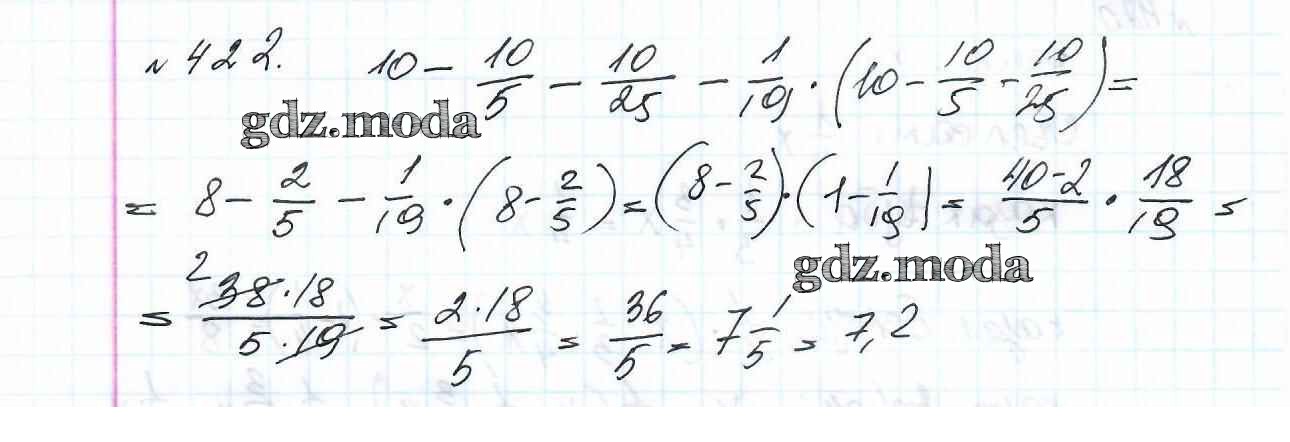 № 422. 10 - 10/5 - 10/25 - 1/19 · (10 - 10/5 - 10/25) =
gdz.moda
= 8 - 2/5 - 1/19 · (8 - 2/5) = (8 - 2/5) · (1 - 1/19) = 40-2/5 · 18/19 =
gdz.moda
= 2 38·18/5·19 = 2·18/5 = 36/5 = 7 1/5 = 7,2